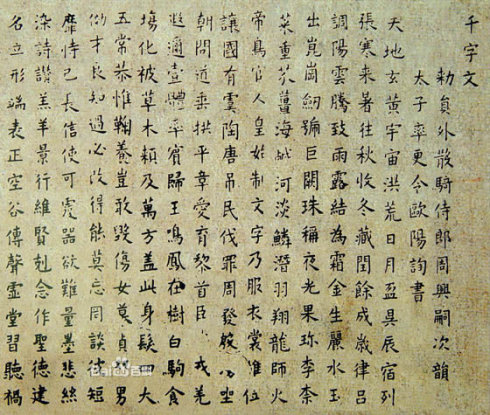 千字文
勅員外散騎侍郎周興嗣次韻
太子率更令歐陽詢書
天地玄黃宇宙洪荒日月盈昃辰宿列
張寒来暑往秋收冬藏閏餘成歲律吕
調陽雲騰致雨露結為霜金生麗水玉
出崑崗劒號巨闕珠稱夜光果珎李柰
菜重芥薑海鹹河淡鱗潛羽翔龍師火
帝鳥官人皇始制文字乃服衣裳推位
讓國有虞陶唐吊民伐罪周發坐
朝問道垂拱平章愛育黎首臣戎羌
遐邇壹體率賓歸王鳴鳳在樹白駒食
塲化被草木賴及萬方盖此身髮四大
五常恭惟鞠養豈敢毀傷女慕貞男
效才良知過必改得能莫忘罔談彼短
靡恃己長信使可覆器欲難量墨悲絲
染詩讚羔羊景行維賢剋念作聖德建
名立形端表正空谷傳聲虛堂習聽禍
Bai百科